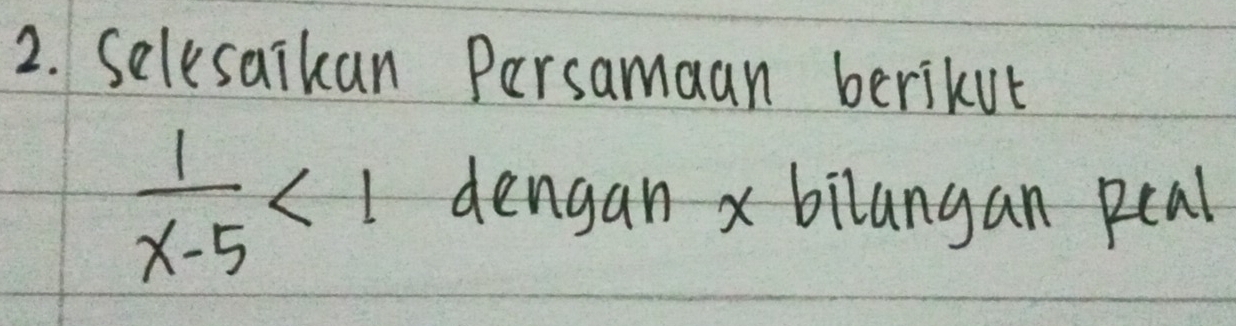 2. Selesaikan Persamaan berikut
1/(x-5) < 1 dengan x bilangan Real